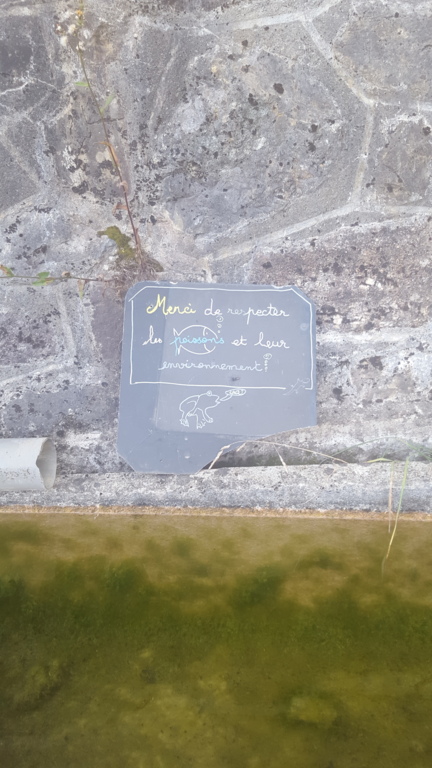 Merci de respecter
les poissons et leur
environnement!